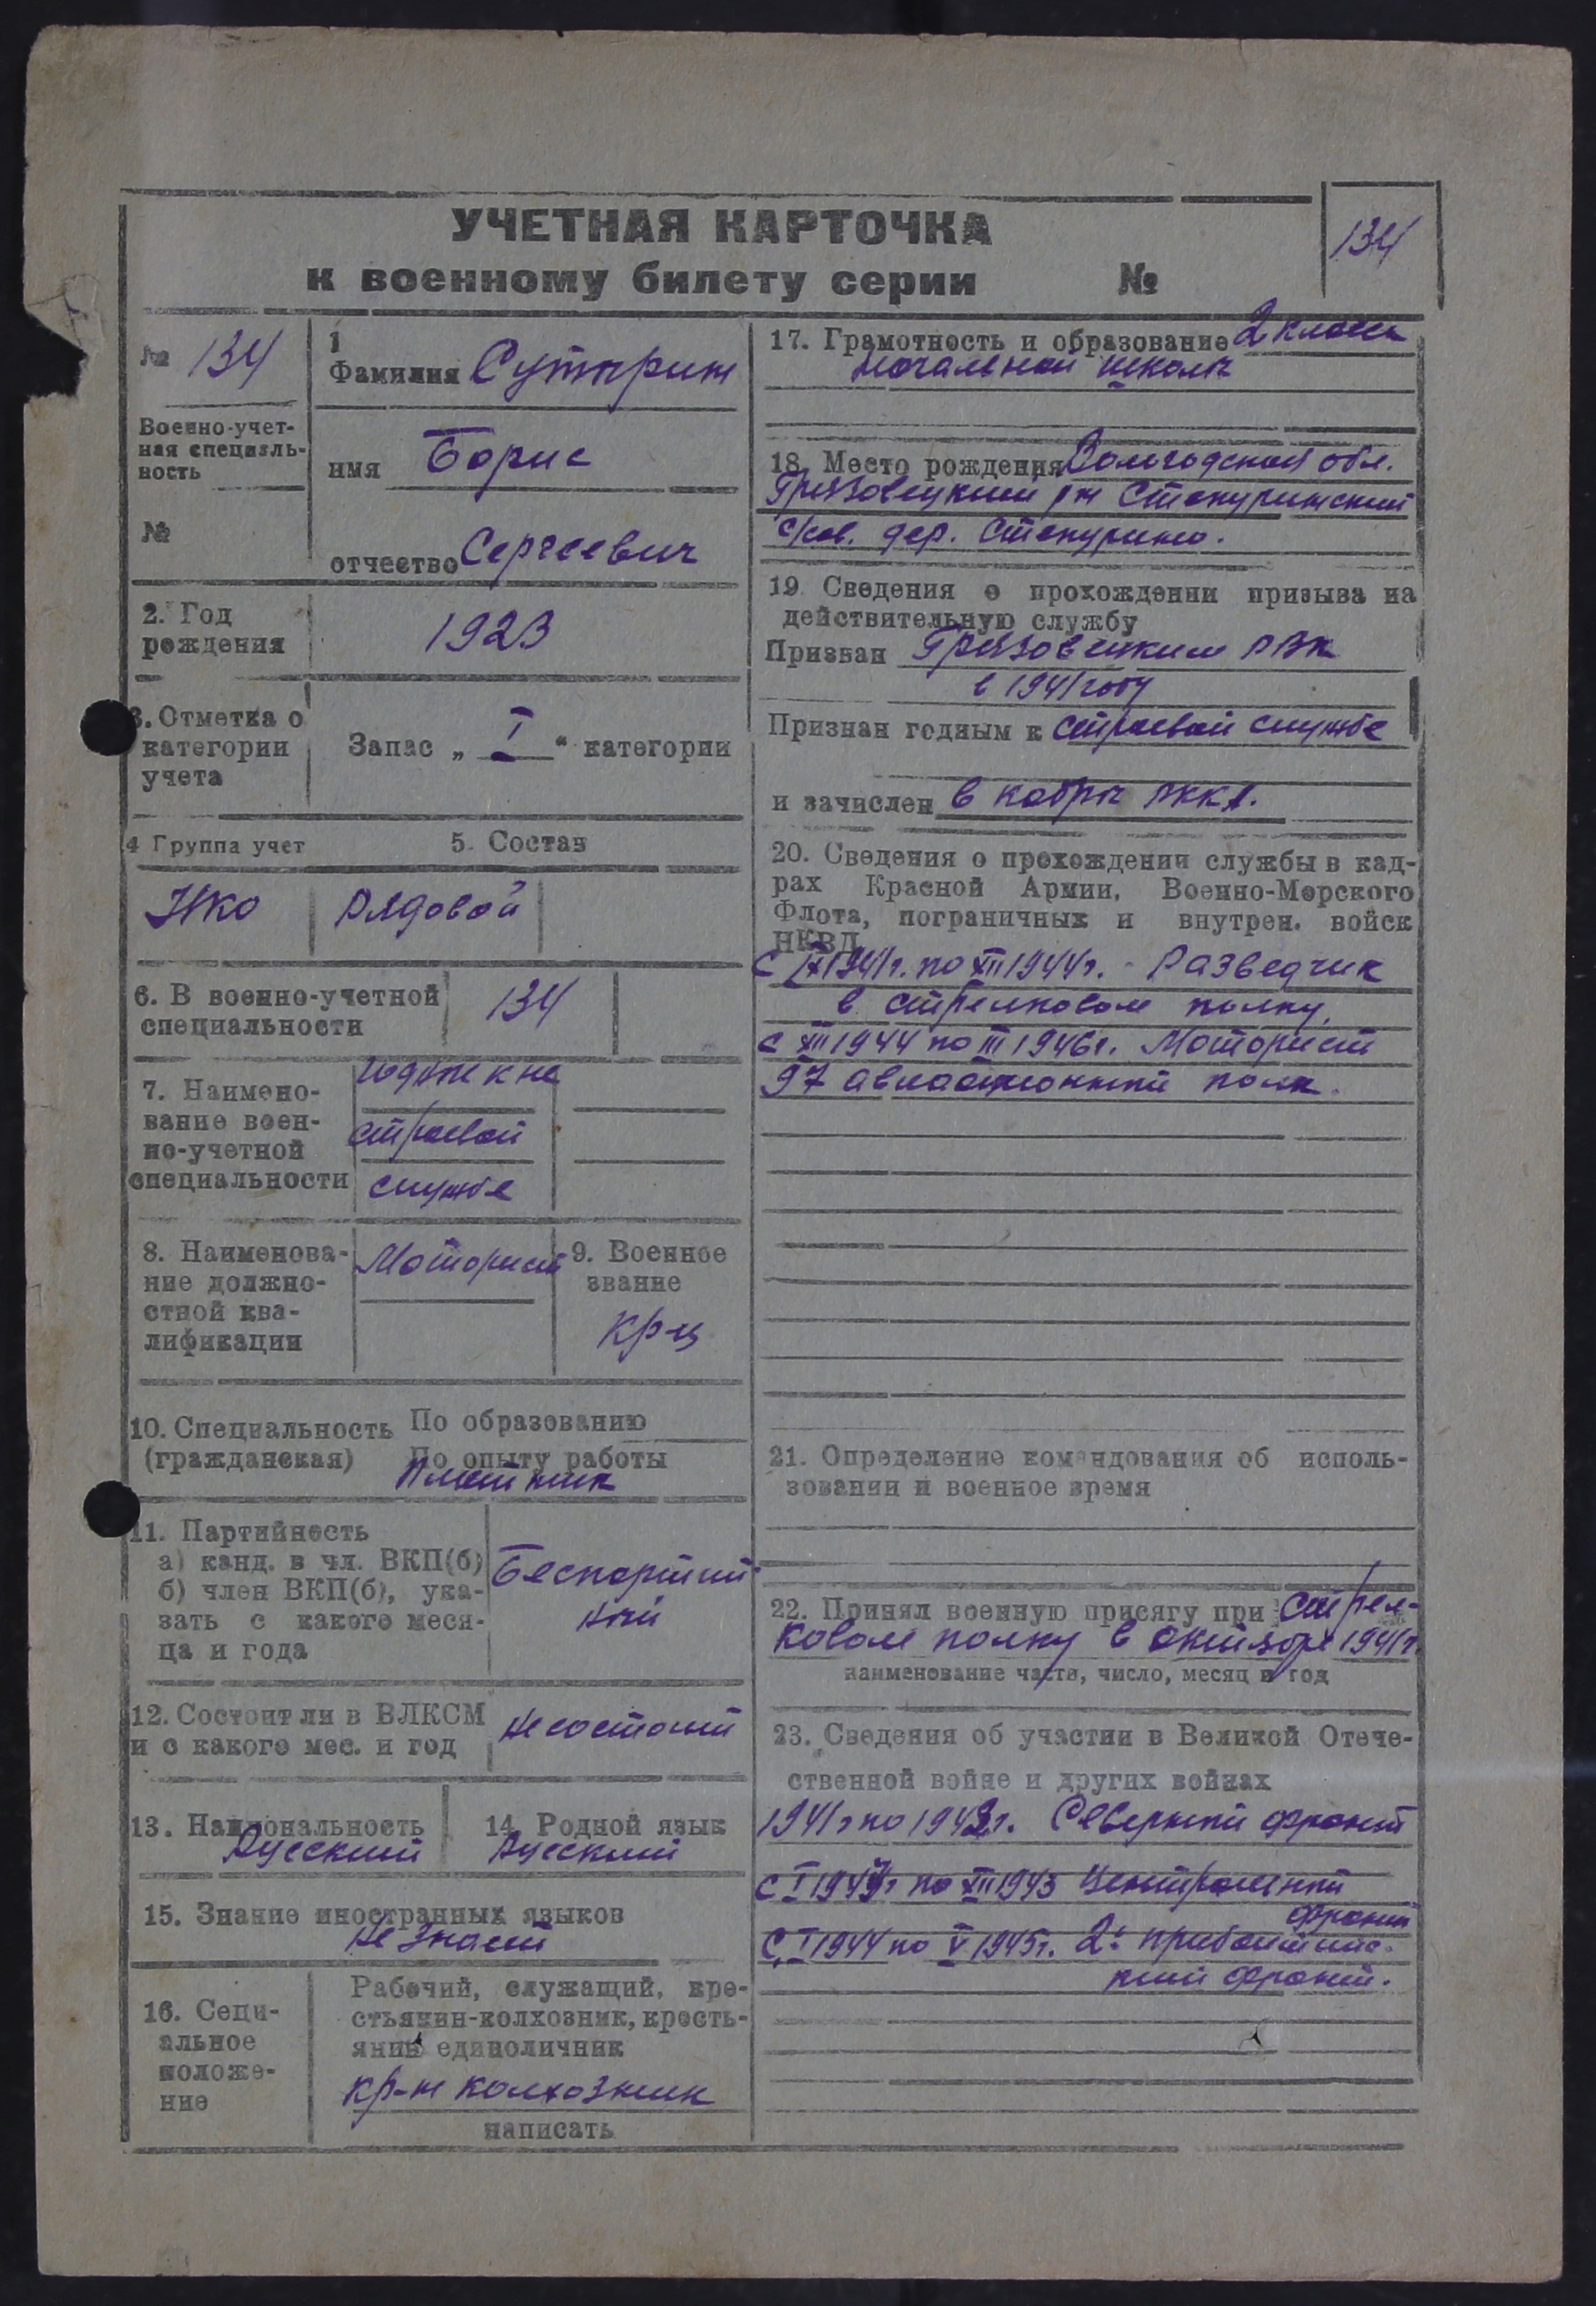 УЧЕТНАЯ КАРТОЧКА
к военному билету серии №
134
№ 134
Военно-учет-
ная специаль-
ность
№
1
Фамилия Сутырин
имя Борис
отчество Сергеевич
2. Год
рождения
1923
3. Отметка о
категории
учета
Запас „ I “ категории
4 Группа учет
5. Состав
НКО
Рядовой
6. В военно-учетной
специальности
134
7. Наимено-
вание воен-
но-учетной
специальности
годные к не
строевой
службе
8. Наименова-
ние должно-
стной ква-
лификации
Моторист
9. Военное
звание
кр-ц
10. Специальность По образованию
(гражданская) По опыту работы
Плотник
11. Партийность
а) канд. в чл. ВКП(б)
б) член ВКП(б), ука-
зать с какого меся-
ца и года
Беспартий
ный
12. Состоит ли в ВЛКСМ
и с какого мес. и год
Не состоит
13. Национальность
Русский
14 Родной язык
Русский
15. Знание иностранных языков
Не знает
16. Соци-
альное
положе-
ние
Рабочий, служащий, кре-
стьянин-колхозник, кресть-
янин единоличник
кр-н колхозник
написать
17. Грамотность и образование 2 класса
начальной школы
18. Место рождения Вологодской обл.
Грязовецкий рн Степуринский
с/сов. дер. Степурино.
19. Сведения о прохождении призыва на
действительную службу
Призван Грязовецким РВК
в 1941 году
Признан годным к строевой службе
и зачислен в кадры РККА.
20. Сведения о прохождении службы в кад-
рах Красной Армии, Военно-Морского
Флота, пограничных и внутрен. войск
НКВД
с IX 1941г. по XII 1944г. - Разведчик
в стрелковом полку.
с XII 1944 по III 1946г. Моторист
97 авиационный полк.
21. Определение командования об исполь-
зовании в военное время
22. Принял военную присягу при Стрел-
ковом полку в октябре 1941г.
наименование части, число, месяц и год
23. Сведения об участии в Великой Отече-
ственной войне и других войнах
1941г по г. Северный фронт
с I по XII 1943 Центральный
фронт
С I 1944 по V 1945г. 2й прибалтийс-
кий фронт.